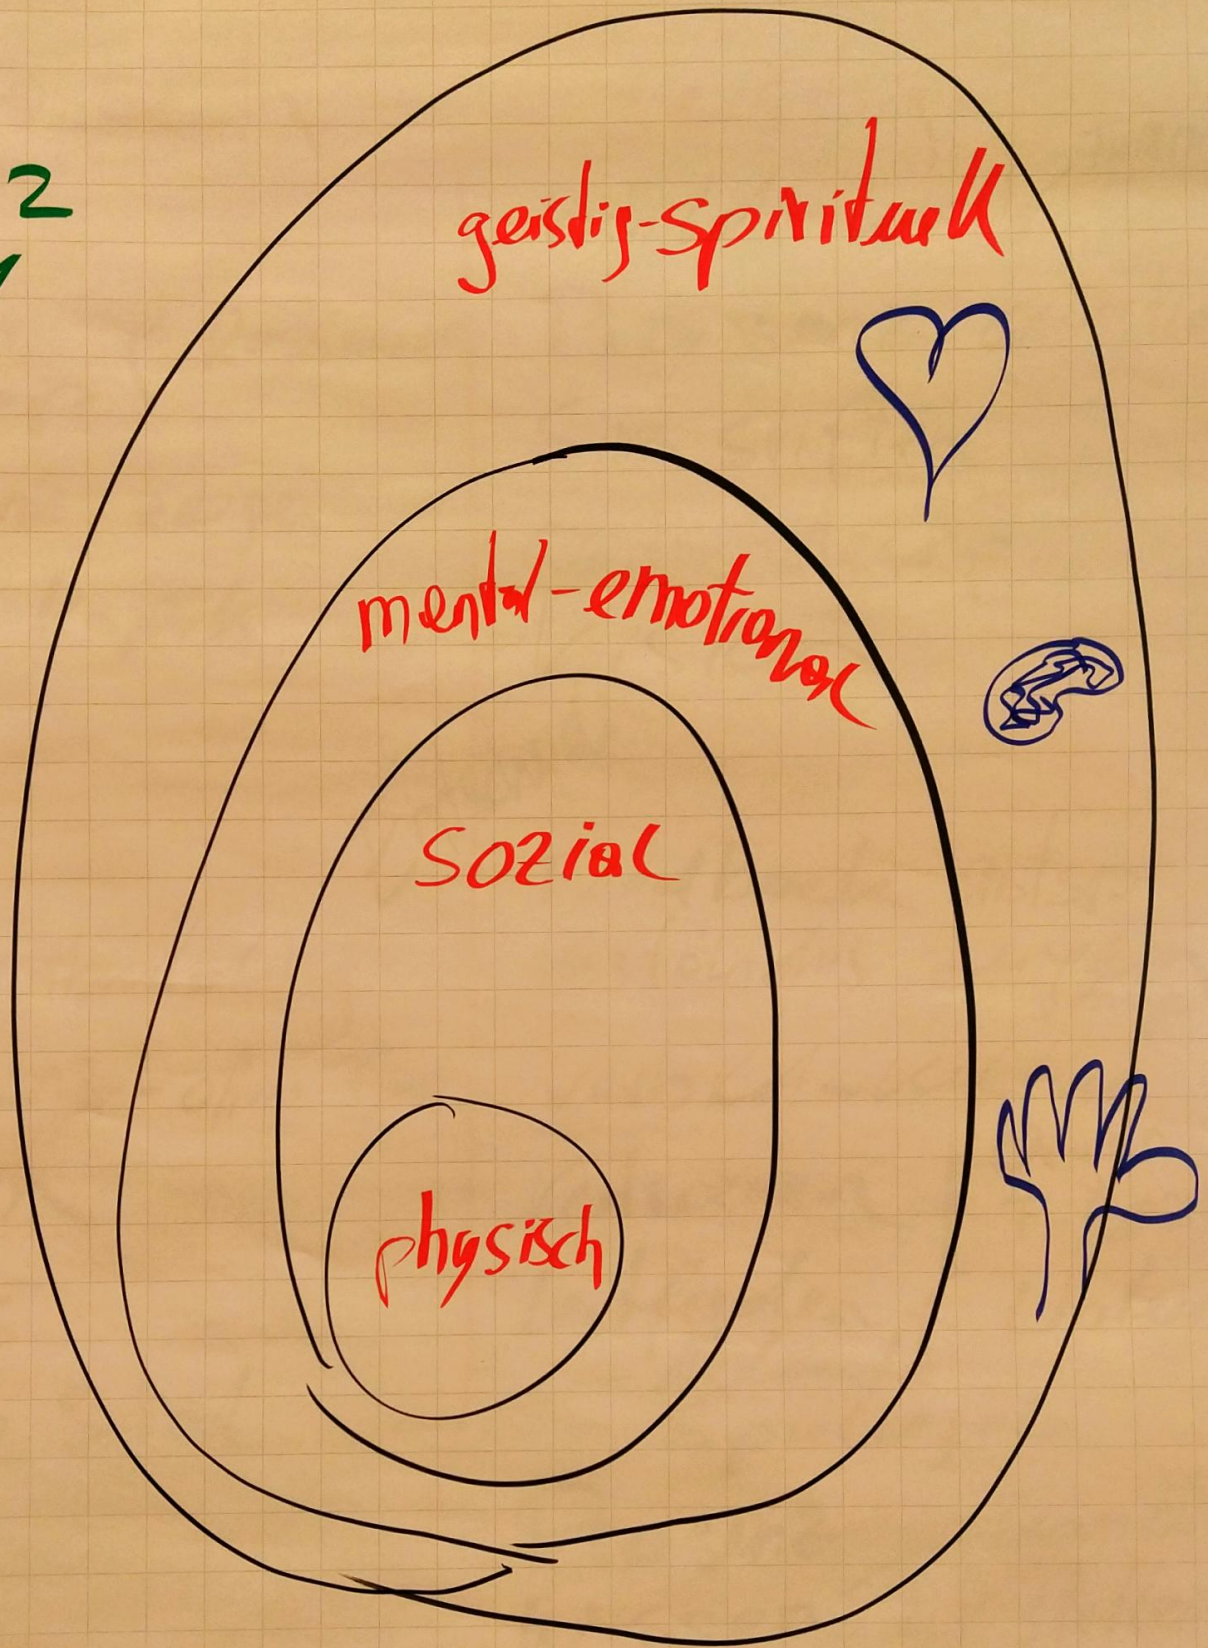 2
geistig-spirituell
mental-emotional
sozial
physisch